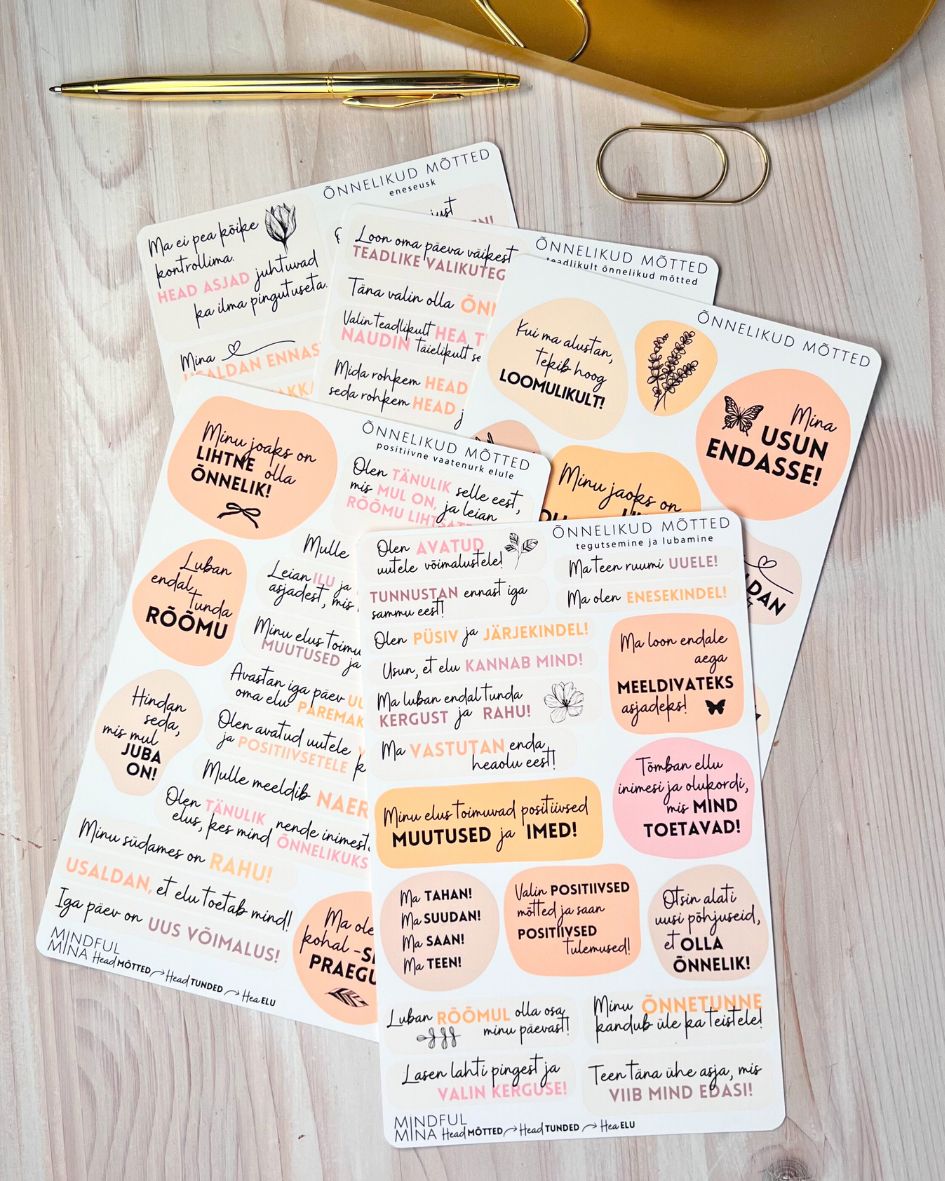 ÕNNELIKUD MÕTTED
eneseusk
Ma ei pea kõike
kontrollima.
HEAD ASJAD juhtuvad
ka ilma pingutuseta.
Mina
USALDAN ENNAST
ÕNNELIKUD MÕTTED
teadlikult õnnelikud mõtted
Loon oma päeva
TEADLIKE
Täna valin olla
Valin teadlikult HEA
NAUDIN täielikult
Mida rohkem HEAD
seda rohkem HEAD
ÕNNELIKUD MÕTTED
Kui ma alustan,
tekib hoog
LOOMULIKULT!
Mina
USUN
ENDASSE!
Minu jaoks on
ÕNNELIKUD MÕTTED
positiivne vaatenurk elule
Minu joaks on
LIHTNE olla
ÕNNELIK!
Olen TÄNULIK selle eest,
mis MUL ON, ja leian
Luban
endal
tunda
RÕÕMU
Mulle
Leian ILU ja
asjadest, mis
Minu elus
MUUTUSED ja
Avastan iga päev
oma elu
Olen avatud uutele
ja POSITIIVSETELE
Hindan
seda,
mis mul
JUBA
ON!
Mulle meeldib
Olen TÄNULIK nende
elus, kes mind ÕNNELIKUKS
Minu südames on RAHU!
USALDAN, et elu toetab mind!
Iga päev on UUS VÕIMALUS!
Ma
kohal
MINDFUL
MINA Head MÕTTED Head TUNDED Hea ELU
ÕNNELIKUD MÕTTED
tegutsemine ja lubamine
Olen AVATUD
uutele võimalustele!
Ma teen ruumi UUELE!
TUNNUSTAN ennast iga
sammu eest!
Ma olen ENESEKINDEL!
Olen PÜSIV ja JÄRJEKINDEL!
Usun, et elu KANNAB MIND!
Ma loon endale
aega
MEELDIVATEKS
asjadeks!
Ma luban endal tunda
KERGUST ja RAHU!
Ma VASTUTAN enda
heaolu eest!
Tõmban ellu
inimesi ja olukordi,
mis MIND
TOETAVAD!
Minu elus toimuvad positiivsed
MUUTUSED ja IMED!
Ma TAHAN!
Ma SUUDAN!
Ma SAAN!
Ma TEEN!
Valin POSITIIVSED
mõtted ja saan
POSITIIVSED
tulemused!
Otsin alati
uusi põhjuseid,
et OLLA
ÕNNELIK!
Luban RÕÕMUL olla osa
minu päevast!
Minu ÕNNETUNNE
kandub üle ka teistele!
Lasen lahti pingest ja
VALIN KERGUSE!
Teen täna ühe asja, mis
VIIB MIND EDASI!
MINDFUL
MINA Head MÕTTED Head TUNDED Hea ELU